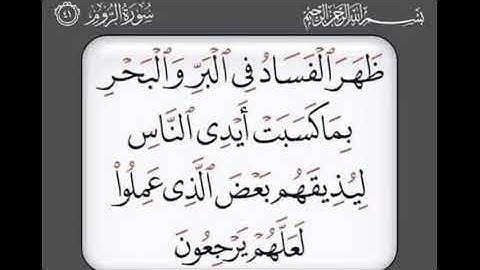 بسم الله الرحمن الرحيم
سورة الروم ٤١
ظَهَرَ ٱلْفَسَادُ فِى ٱلْبَرِّ وَٱلْبَحْرِ
بِمَا كَسَبَتْ أَيْدِى ٱلنَّاسِ
لِيُذِيقَهُم بَعْضَ ٱلَّذِى عَمِلُوا۟
لَعَلَّهُمْ يَرْجِعُونَ